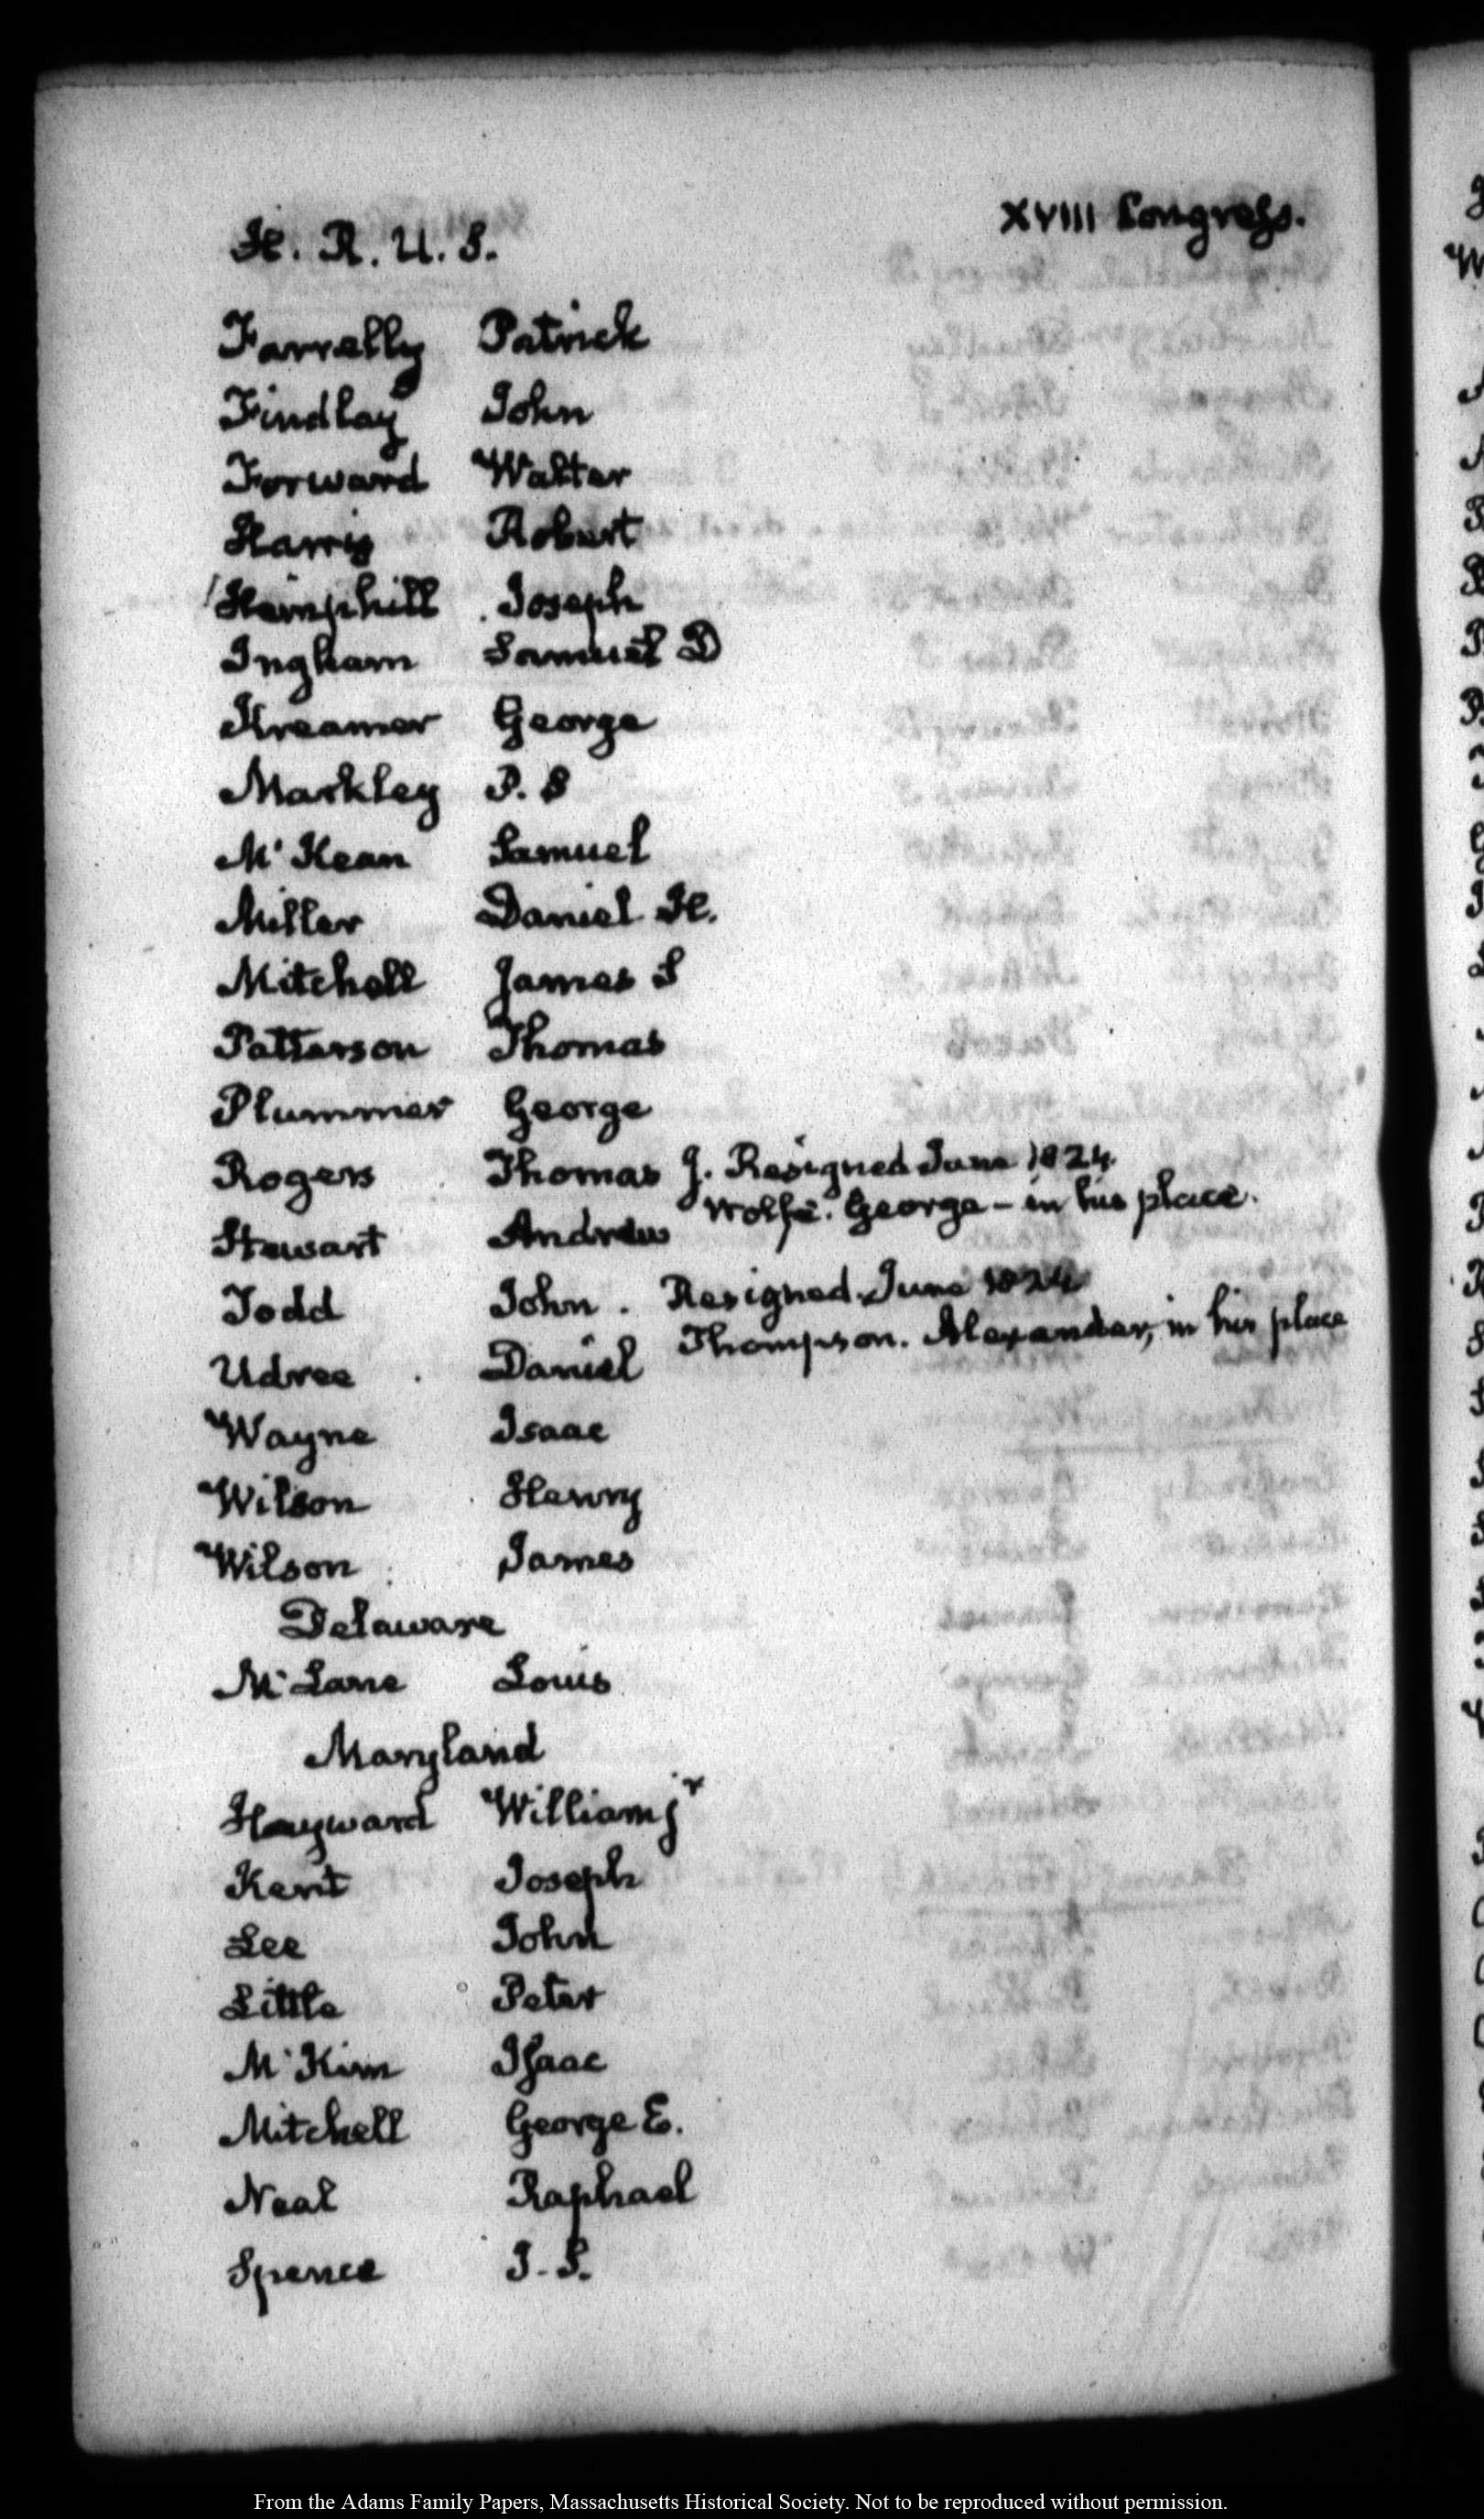 H. R. U. S.
XVIII Congress.
Farrelly Patrick
Findlay John
Forward Walter
Harris Robert
Hemphill Joseph
Ingham Samuel D
Kreamer George
Markley P. S
Mc Kean Samuel
Miller Daniel H.
Mitchell James S
Patterson Thomas
Plummer George
Rogers Thomas J. Resigned June 1824.
Wolfe. George - in his place.
Stewart Andrew
Todd John. Resigned June 1824
Thompson. Alexander, in his place
Udree Daniel
Wayne Isaac
Wilson Henry
Wilson James
Delaware
Mc Lane Louis
Maryland
Hayward William jr
Kent Joseph
Lee John
Little Peter
Mc Kim Isaac
Mitchell George E.
Neal Raphael
Spence J. S.
From the Adams Family Papers, Massachusetts Historical Society. Not to be reproduced without permission.